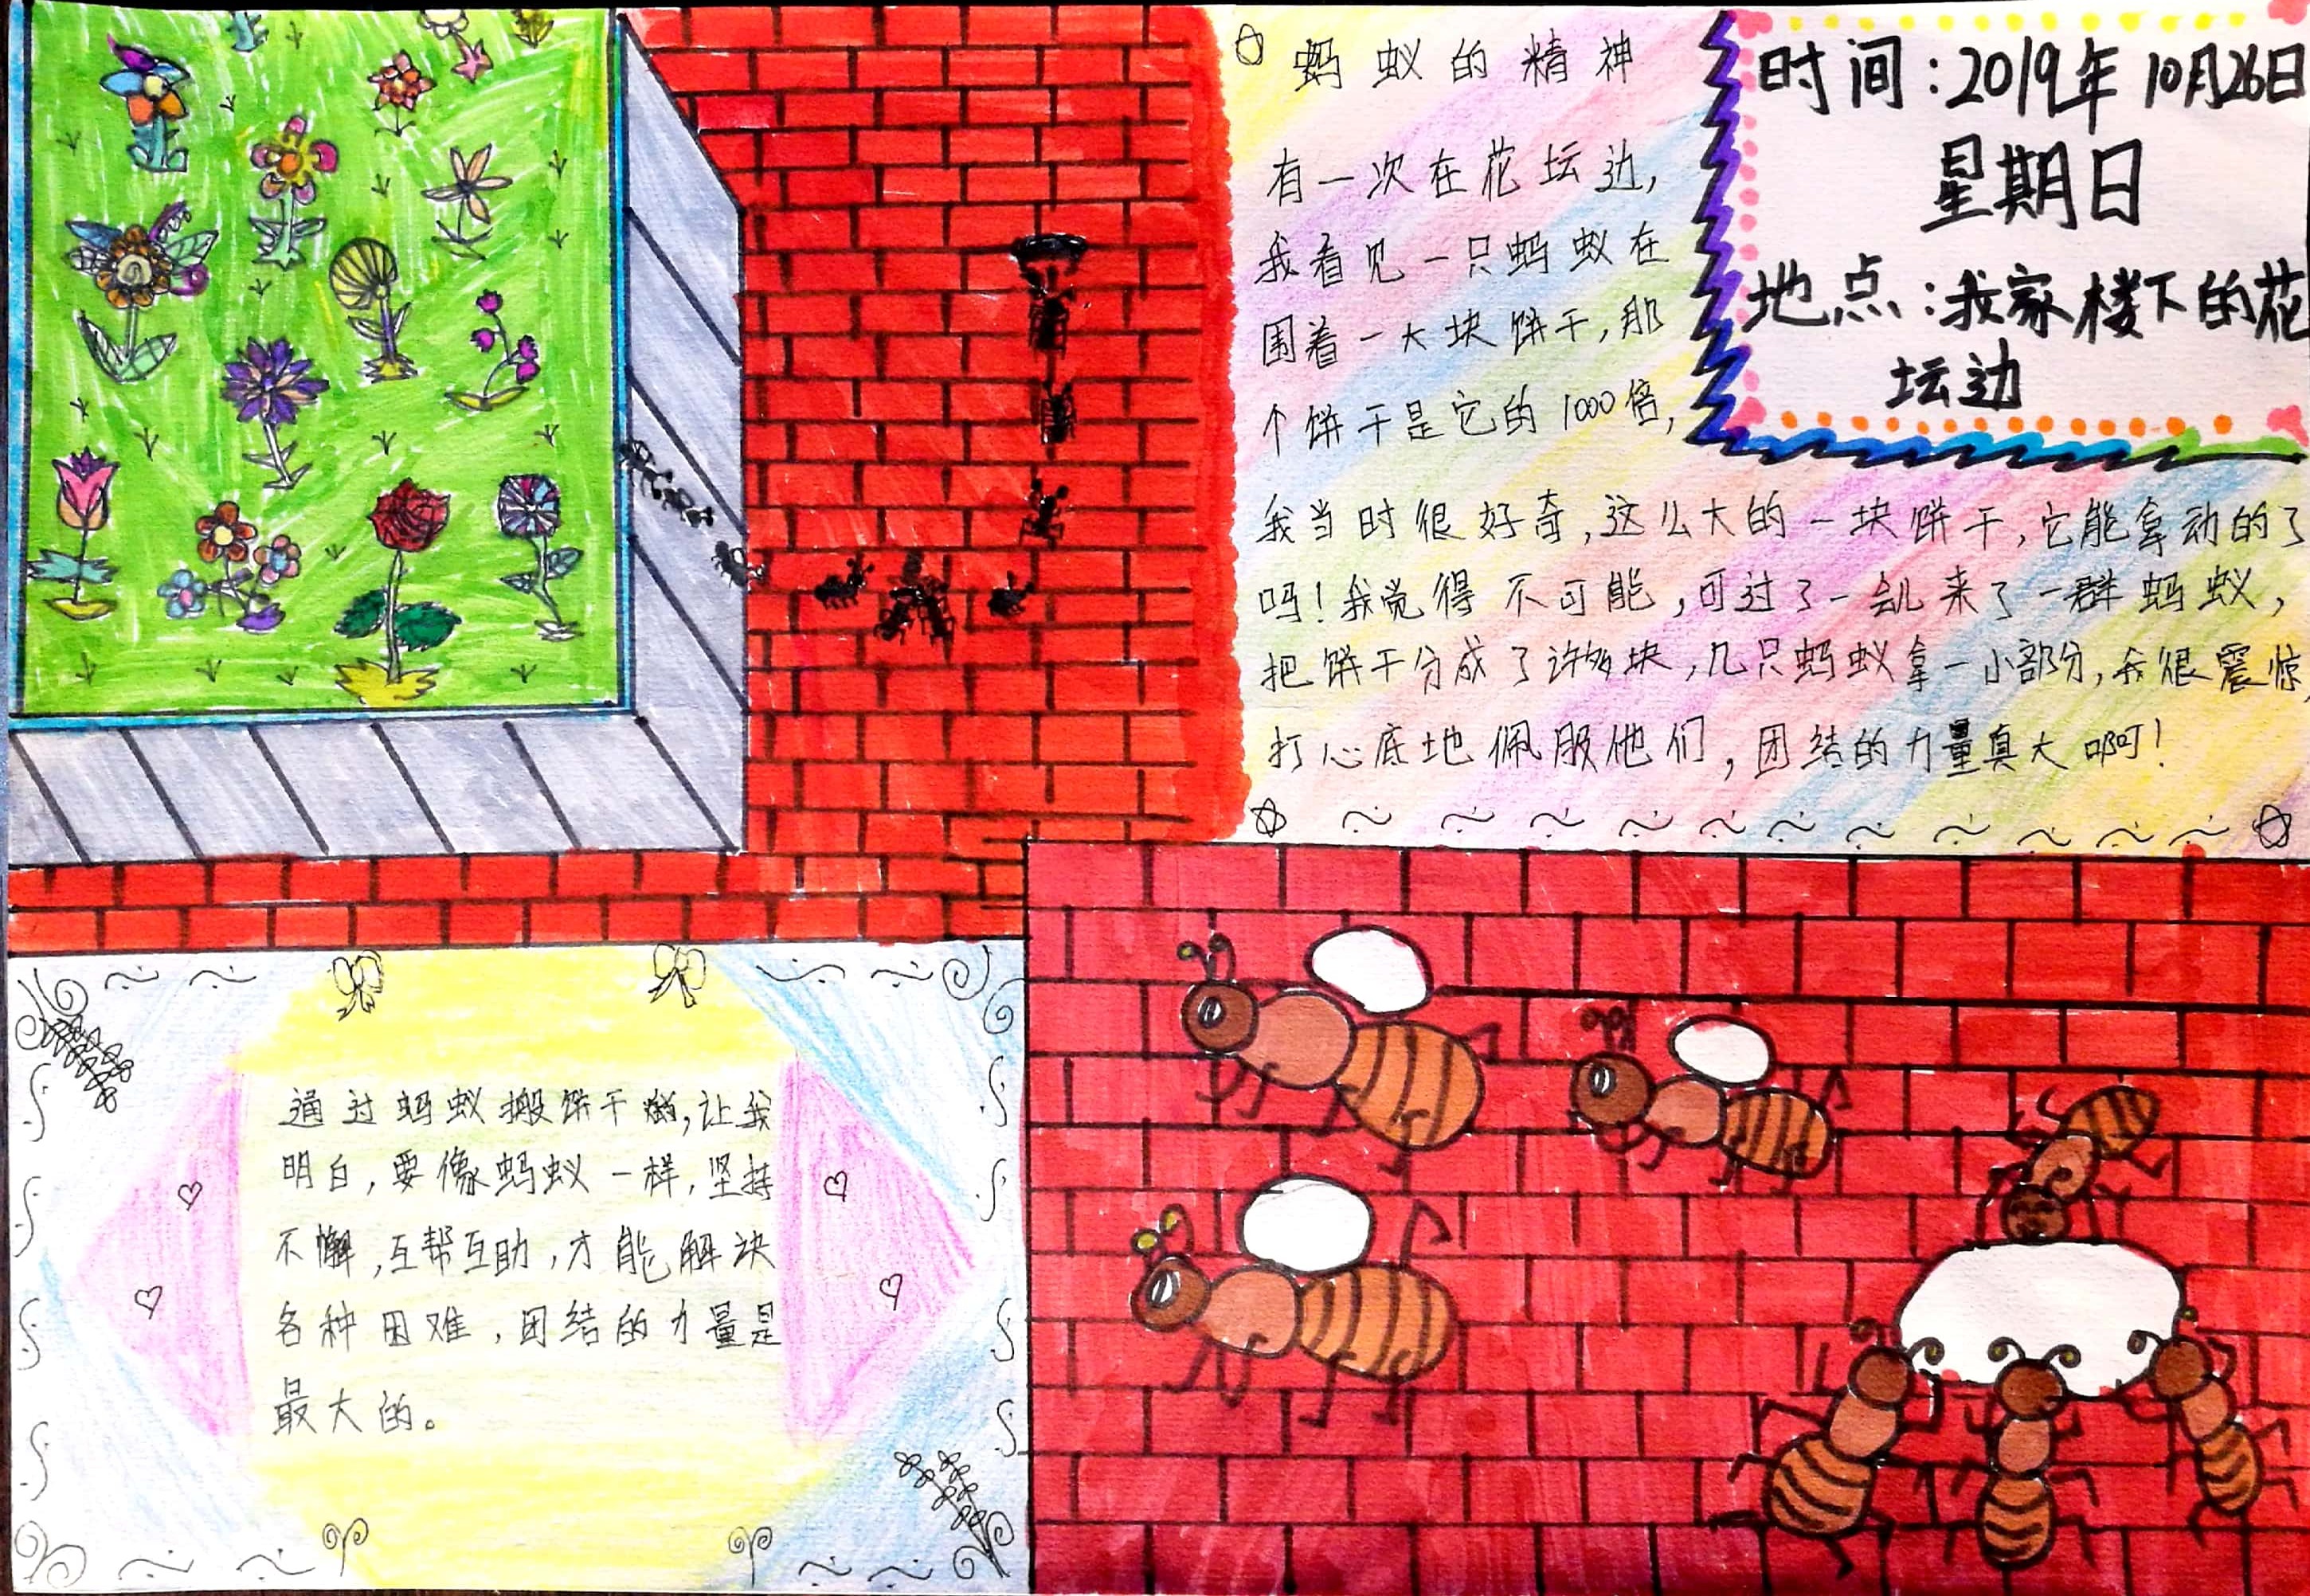 蚂蚁的精神
时间:2019年10月26日
星期日
地点:我家楼下的花
坛边
有一次在花坛边,
我看见一只蚂蚁在
围着一大块饼干,那
个饼干是它的1000倍,
我当时很好奇,这么大的一块饼干,它能拿动的了
吗!我觉得不可能,可过了一会儿来了一群蚂蚁,
把饼干分成了许多块,几只蚂蚁拿一小部分,我很震惊,
打心底地佩服他们,团结的力量真大啊!
通过蚂蚁搬饼干,让我
明白,要像蚂蚁一样,坚持
不懈,互帮互助,才能解决
各种困难,团结的力量是
最大的。